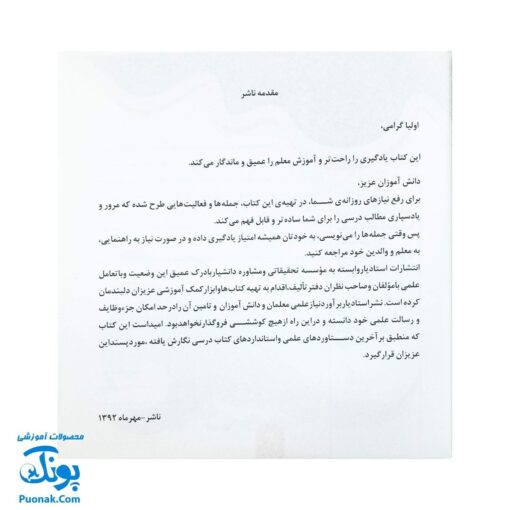 مقدمه ناشر
اولیا گرامی،
این کتاب یادگیری را راحت‌تر و آموزش معلم را عمیق و ماندگار می‌کند.
دانش آموزان عزیز،
برای رفع نیازهای روزانه‌ی شـــما، در تهیه‌ی این کتاب، جمله‌ها و فعالیت‌هایی طرح شده که مرور و
یادسپاری مطالب درسی را برای شما ساده‌تر و قابل فهم می‌کند.
پس وقتی جمله‌ها را می‌نویسی، به خودتان همیشه امتیاز یادگیری داده و در صورت نیاز به راهنمایی،
به معلم و والدین خود مراجعه کنید.
انتشارات استادیار وابسته به مؤسسه تحقیقاتی ومشاوره دانشیار بادرک عمیق این وضعیت وباتعامل
علمی بامؤلفان وصاحب نظران دفتر تألیف،اقدام به تهیه کتاب‌هاوابزار کمک آموزشی عزیزان دلبندمان
کرده است. نشر استادیار برآوردنیازعلمی معلمان و دانش آموزان و تامین آن رادرحد امکان جزءوظایف
و رسالت علمی خود دانسته و دراین راه ازهیچ کوششـــی فروگذارنخواهدبود. امیداست این کتاب
که منطبق بر آخرین دســـتاوردهای علمی واستانداردهای کتاب درسی نگارش یافته ،موردپسنداین
عزیزان قرارگیرد.
ناشر-مهرماه ۱۳۹۲
محصولات آموزشی
پونک
Puonak.Com